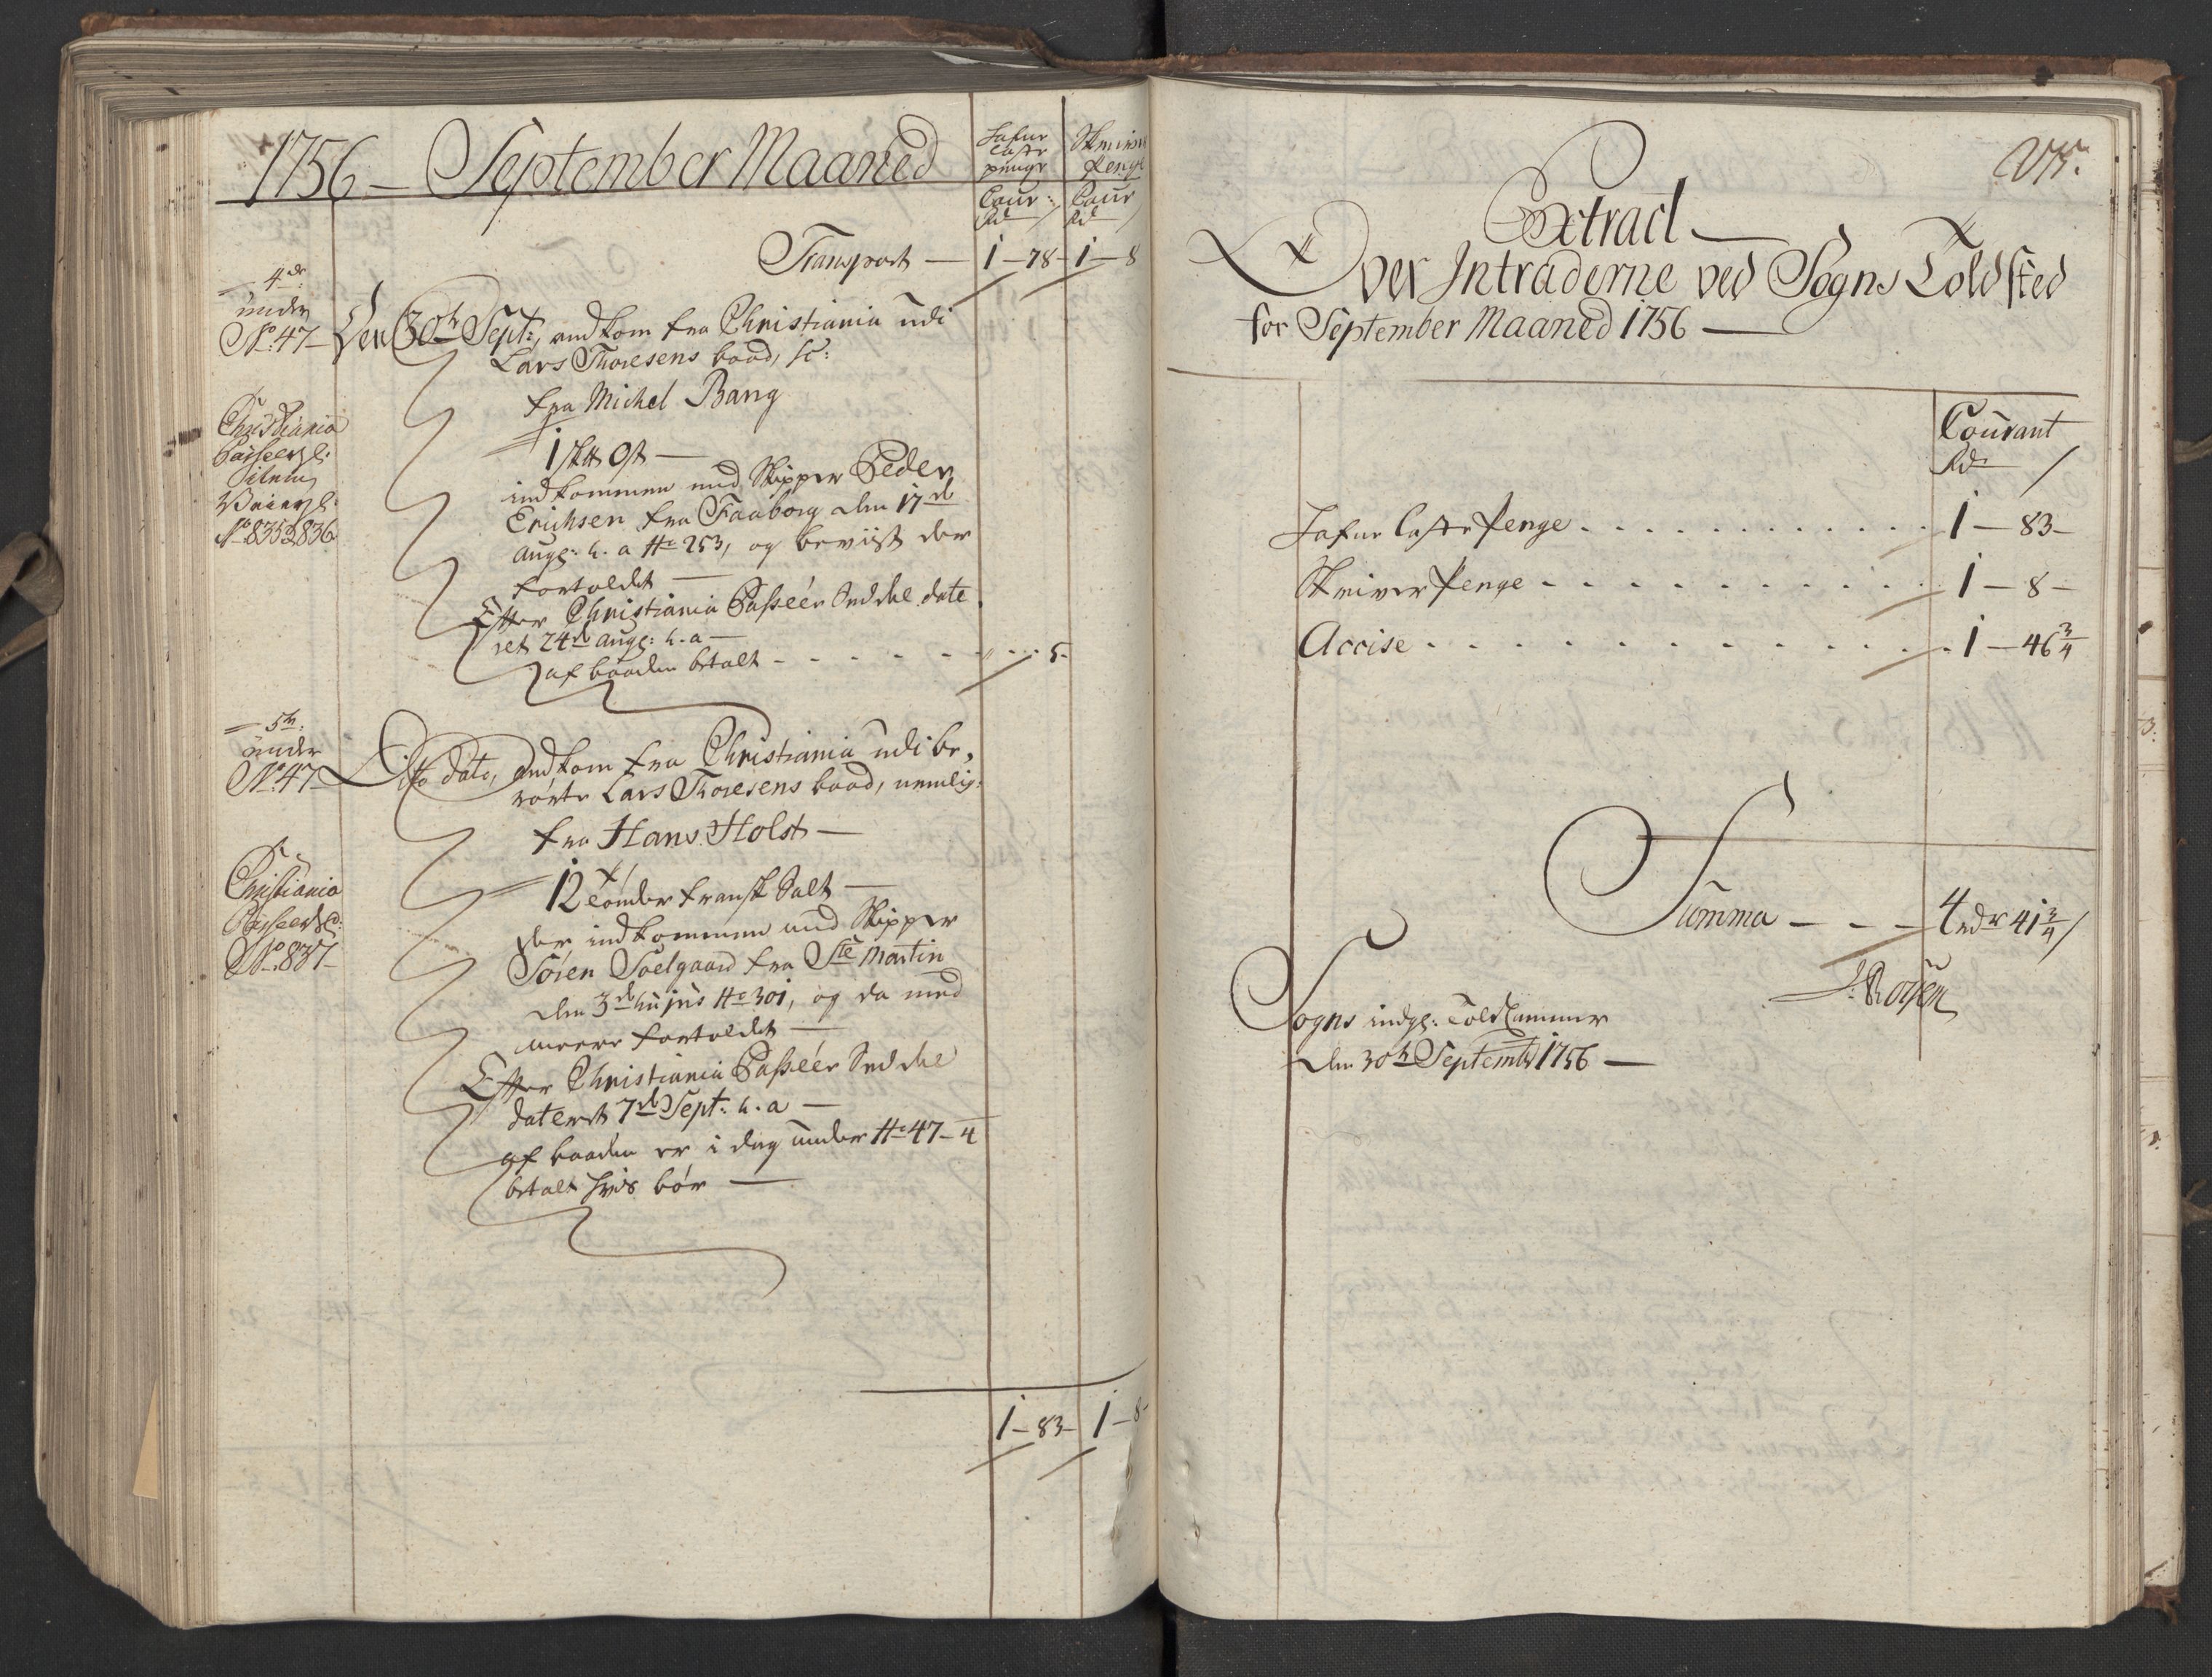 1756 — September Maaned
Lafue
Laste
penge
Skriver
Penge
Cour:
Rd /
Cour
Rd /
Transport — 1 — 78 — 1 — 8
4de:
under
No: 47 —
Den 30te Sept:, andkom fra Christiania udi
Lars Thoresens baad, sc:
fra Michel Bang
Christiania
Passeerze:
No 835 & 836
1 sk℔ Ost —
indkommen med Skipper Peder
Erichsen fra Faaborg den 17de
Augs: h. a No 253, og beviist der
fortoldet —
Efter Christiania Passeer Seddel date
ret 24de Augs: h. a —
af baaden betalt - - - - - - " . . 5 -
5te:
under
No: 47
Dito dato, andkom fra Christiania udi be,
rörte Lars Thoresens baad, nemlig:
fra Hans Holst —
Christiania
Passeerze:
No 837 —
12 tönder fransk Salt —
der indkommen med Skipper
Sören Soelgaard fra Ste Martin
den 3de hujus No 301, og da med
meere fortoldet —
Efter Christiania Passeer Seddel
dateret 7de Sept: h. a —
af baaden er i dag under No 47 — 4
betalt hvis bör —
1 — 83 — 1 — 8 —
Extract —
Over Intraderne ved Sogns Toldsted
for September Maaned 1756 —
Courant
Rd /
Lafue Laste Penge . . . . . . . . . . . . 1 — 83 —
Skriver Penge - - - - - - - - - - - 1 — 8 —
Accise . . . . . . . . . . . . . . 1 — 46 3/4
Summa — — — 4 rdr 41 3/4 /
Sogns indge: Told Cammer
den 30te Septembr 1756 —